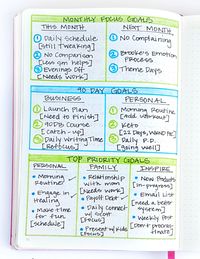 MONTHLY FOCUS GOALS
THIS MONTH
NEXT MONTH
① Daily Schedule
[Still Tweaking]
② No Comparison
[Less sm helps]
③ Evenings Off
[Needs work]
① No Complaining
② Brooke's Emotion
Process
③ Theme Days
90 DAY GOALS
BUSINESS
PERSONAL
① Launch Plan
[Need to Finish]
② 90 Days Course
[Catch-up]
③ Daily Writing Time
[Refocus]
① Morning Routine
[add workout]
② Keto
[22 Days,
③ Daily P.D.
[going well]
TOP PRIORITY GOALS
PERSONAL
FAMILY
INSPIRE
• Morning
Routine
• Engage in
Healing
• Make Time
for fun
[schedule]
• Relationship
with mom
[Needs work]
• Payoff Debt
• Daily Connect
w/ Scoot
[focus]
• Present w/ kids
[focus]
• New Products
[in-progress]
• Email List
[need a better
system]
• Weekly Post
[Don't procras-
tinate]